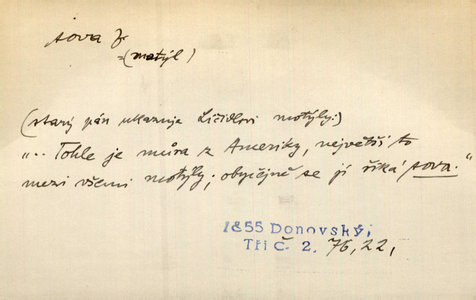 sova f.
=(motýl)
(starý pán ukazuje Líčidlovi motýly:)
"... Tohle je můra z Ameriky, největší to
mezi všemi motýly; obyčejně se jí říká sova."
1855 Donovský;
Tři č. 2. 76, 22,